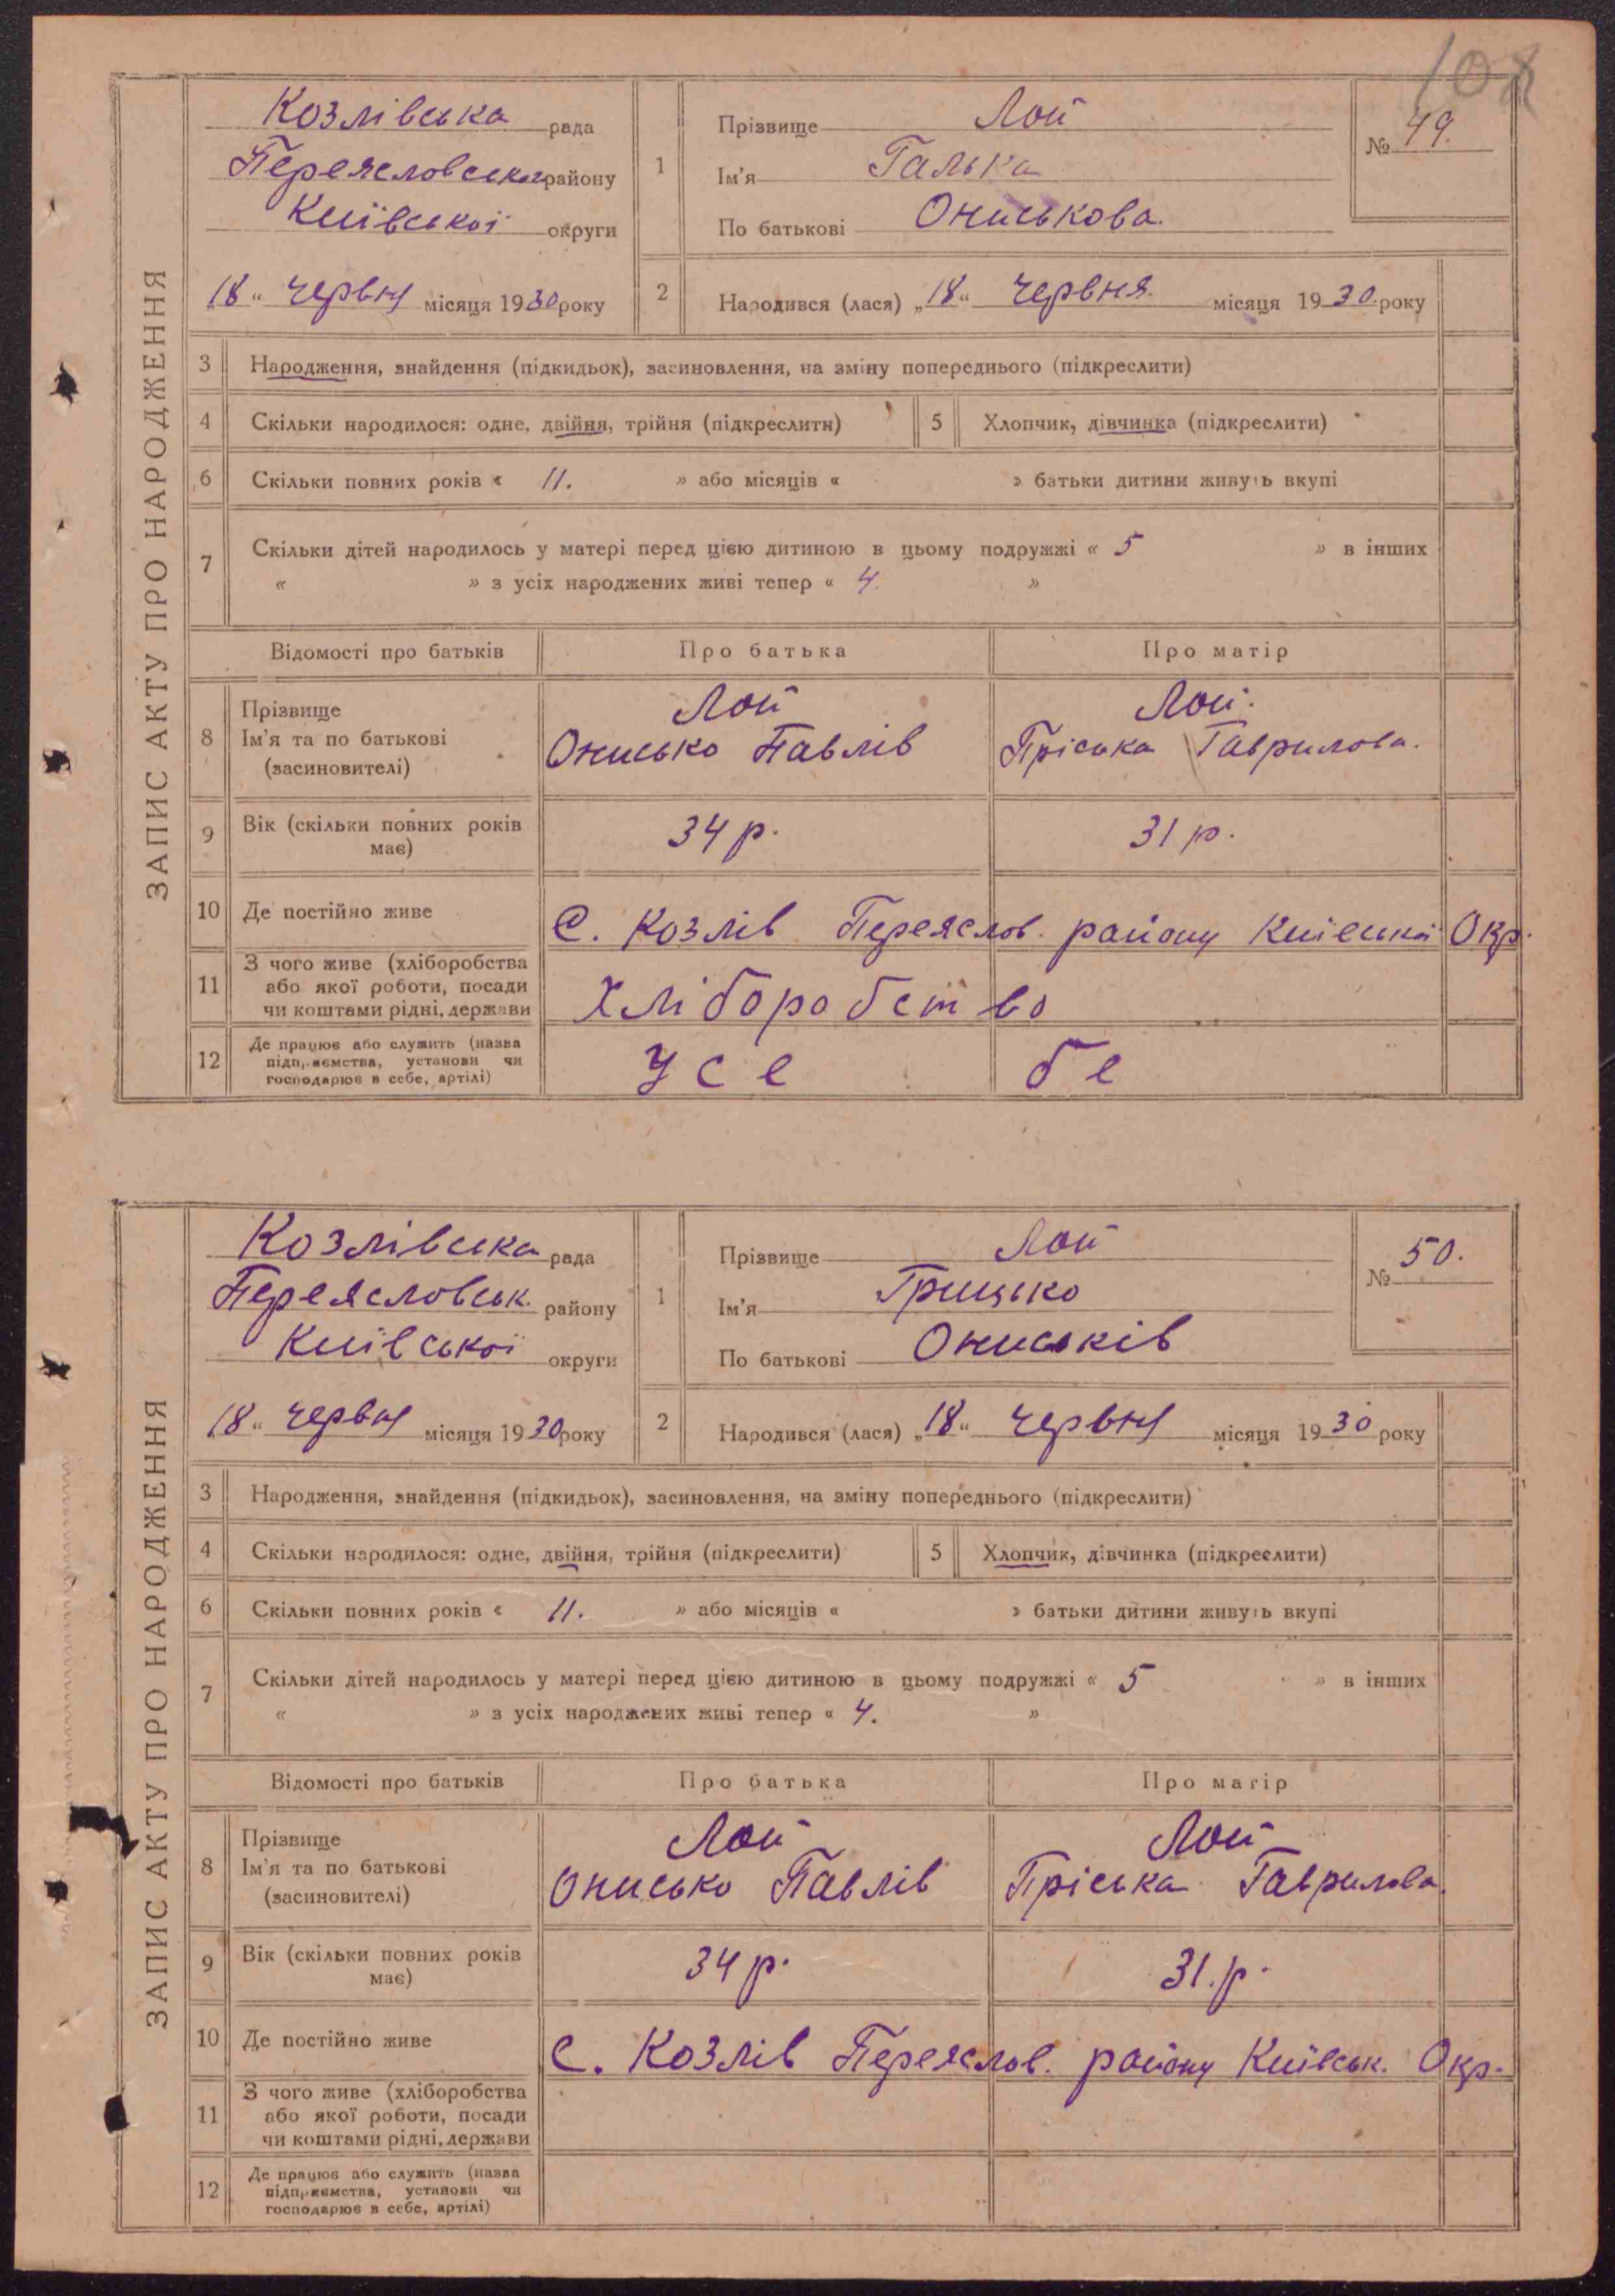 ЗАПИС АКТУ ПРО НАРОДЖЕННЯ
Козлівська рада
Переясловська району
Київської округи
18 " червня місяця 1930 року
1
Прізвище Лой
Ім'я Галька
По батькові Ониськова.
№ 49.
2
Народився (лася) „18" червня місяця 1930 року
3 Народження, знайдення (підкидьок), засиновлення, на зміну попереднього (підкреслити)
4 Скільки народилося: одне, двійня, трійня (підкреслити)
5 Хлопчик, дівчинка (підкреслити)
6 Скільки повних років « 11. » або місяців « » батьки дитини живуть вкупі
7 Скільки дітей народилось у матері перед цією дитиною в цьому подружжі « 5 » в інших
« » з усіх народжених живі тепер « 4. »
Відомості про батьків Про батька Про матір
8 Прізвище
Ім'я та по батькові
(засиновителі)
Лой
Онисько Павлів
Лой.
Пріська Гаврилова.
9 Вік (скільки повних років
має)
34 р. 31 р.
10 Де постійно живе С. Козлів Переяслов. району Київської Окр.
11 З чого живе (хліборобства
або якої роботи, посади
чи коштами рідні, держави
Хліборобство
12 Де працює або служить (назва
підприємства, установи чи
господарює в себе, артілі)
У се бе
ЗАПИС АКТУ ПРО НАРОДЖЕННЯ
Козлівська рада
Переясловськ. району
Київської округи
18 " червня місяця 1930 року
1
Прізвище Лой
Ім'я Грицько
По батькові Ониськів
№ 50.
2
Народився (лася) „18" червня місяця 1930 року
3 Народження, знайдення (підкидьок), засиновлення, на зміну попереднього (підкреслити)
4 Скільки народилося: одне, двійня, трійня (підкреслити)
5 Хлопчик, дівчинка (підкреслити)
6 Скільки повних років « 11. » або місяців « » батьки дитини живуть вкупі
7 Скільки дітей народилось у матері перед цією дитиною в цьому подружжі « 5 » в інших
« » з усіх народжених живі тепер « 4. »
Відомості про батьків Про батька Про матір
8 Прізвище
Ім'я та по батькові
(засиновителі)
Лой
Онисько Павлів
Лой
Пріська Гаврилова.
9 Вік (скільки повних років
має)
34 р. 31. р.
10 Де постійно живе С. Козлів Переяслов. району Київськ. Окр.
11 З чого живе (хліборобства
або якої роботи, посади
чи коштами рідні, держави
12 Де працює або служить (назва
підприємства, установи чи
господарює в себе, артілі)